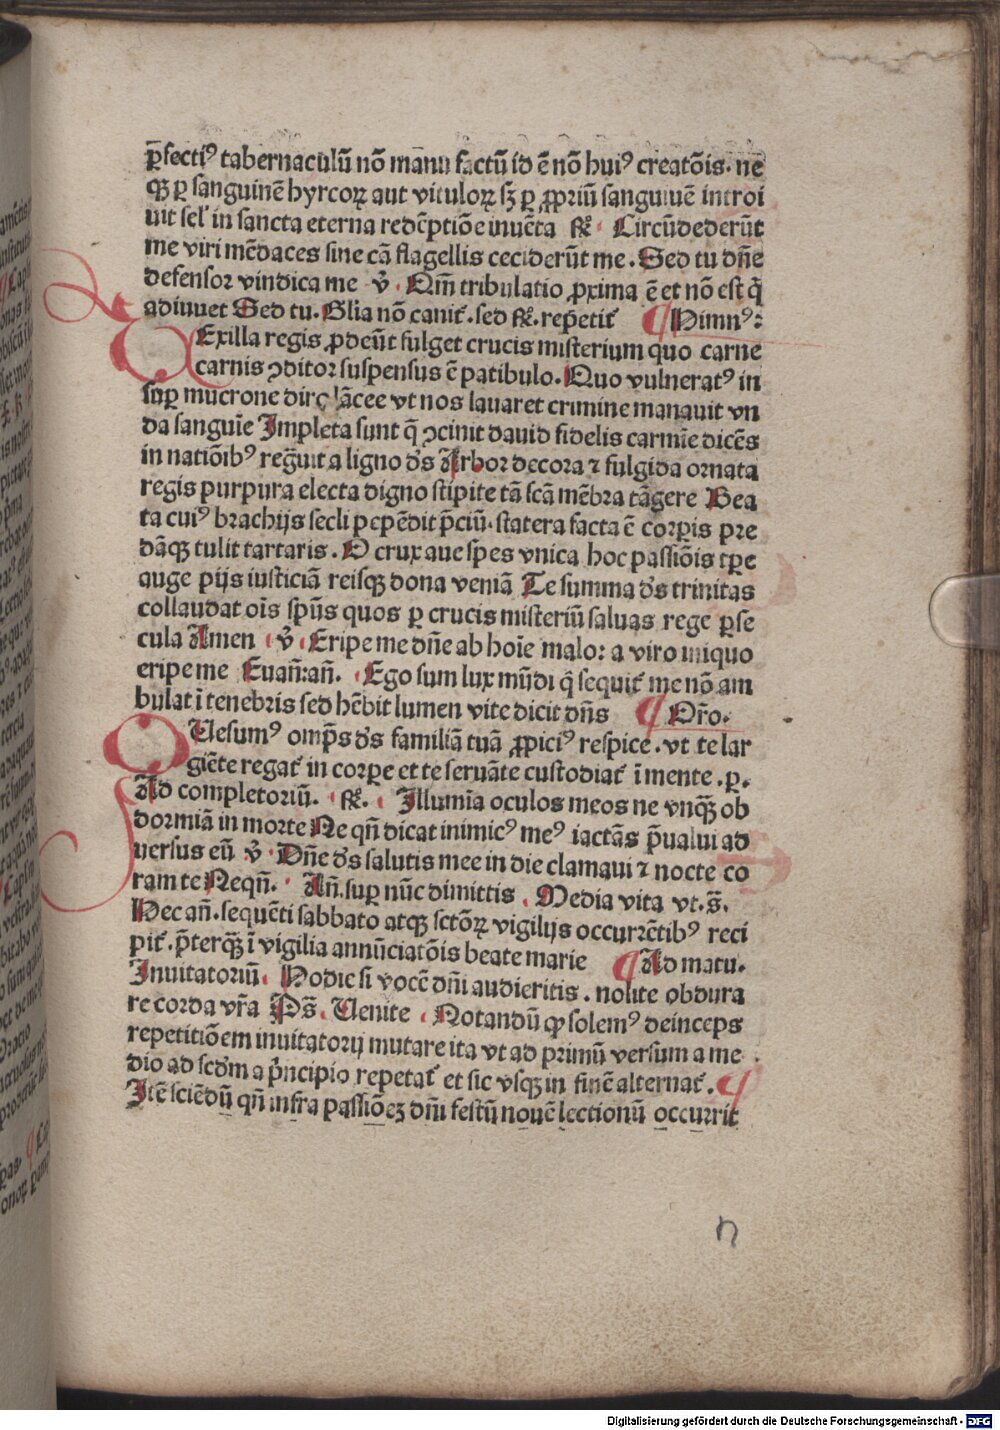 p̄fectiꝰ tabernaculū nō manu factū id ē nō huiꝰ creatōis· ne
qꝫ ꝑ sanguinē hyrcoꝝ aut vituloꝝ sꝫ ꝑ ꝓpriū sanguinē introi
uit sel' in sancta eterna redēptiōe inuēta ꝶ· Circūdederūt
me viri mēdaces sine cā flagellis ceciderūt me. Sed tu dn̄e
defensor vindica me v̄· Qm̄ tribulatio ꝓxima ē et nō est q̄
adiuuet Sed tu. Glia nō canit̄. sed ꝶ. repetit̄ ¶ Himnꝰ:
Exilla regis ꝓdeūt fulget crucis misterium quo carne
carnis ꝯditor suspensus ē patibulo. Quo vulneratꝰ in
suꝑ mucrone dire lācee vt nos lauaret crimine manauit vn
da sanguīe Impleta sunt q̄ ꝯcinit dauid fidelis carmīe dicēs
in natiōibꝰ regnauit a ligno d's Arbor decora ⁊ fulgida ornata
regis purpura electa digno stipite tā scā mēbra tāgere Bea
ta cuiꝰ brachijs secli pepēdit p̄ciū. statera facta ē corꝑis pre
dāqꝫ tulit tartaris. O crux aue spes vnica hoc passiōis tꝑe
auge pijs iusticiā reisqꝫ dona veniā Te summa d's trinitas
collaudat oīs sp̄us quos ꝑ crucis misteriū saluas rege ꝑ se
cula Amen · v̄ · Eripe me dn̄e ab hoīe malo: a viro iniquo
eripe me Euan̄:an̄. · Ego sum lux mūdi q̄ sequit̄ me nō am
bulat ī tenebris sed hēbit lumen vite dicit dn̄s ¶ Or̄o.
Uesumꝰ omp̄s d's familiā tuā ꝓpiciꝰ respice. vt te lar
giēte regat̄ in corꝑe et te seruāte custodiat̄ ī mente. ꝑ.
Ad completoriū. · ꝶ. · Illumīa oculos meos ne vnqꝫ ob
dormiā in morte Ne qn̄ dicat inimicꝰ meꝰ iactās p̄ualui ad
uersus eū v̄· Dn̄e d's salutis mee in die clamaui ⁊ nocte co
ram te Neqn̄. · An̄. suꝑ nūc dimittis . Media vita vt. s̄.
Hec an̄. sequēti sabbato atqꝫ sctōꝝ vigilijs occurrētibꝰ reci
pit̄. p̄terqꝫ ī vigilia annūciatōis beate marie ¶ Ad matu.
Inuitatoriū. Hodie si vocē dn̄i audieritis . nolite obdura
re corda vr̄a Ps̄. Uenite . Notandū ꝙ solemꝰ deinceps
repetitiōem inuitatorij mutare ita vt ad primū versum a me
dio ad scd'm a p̄ncipio repetat̄ et sic vsqꝫ in finē alternat̄. ¶
Itē sciēdū qn̄ infra passiōeꝫ dn̄i festū nouē lectionū occurrit
n
Digitalisierung gefördert durch die Deutsche Forschungsgemeinschaft - DFG